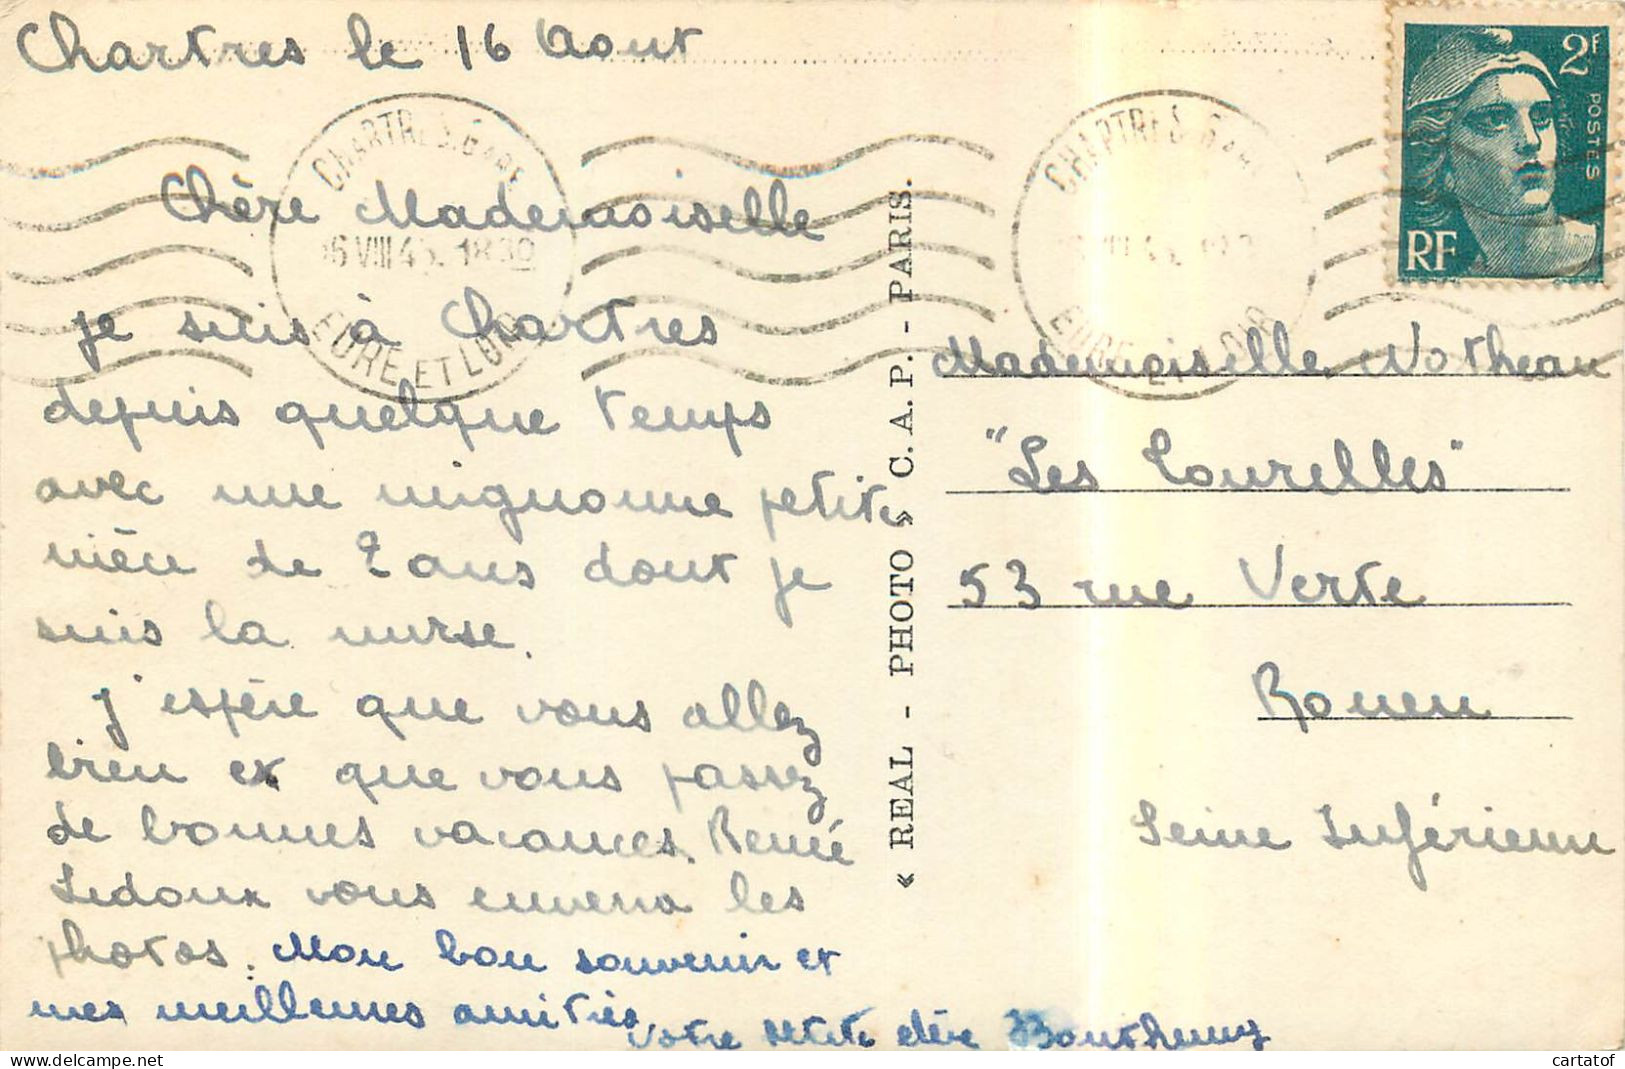 Chartres le 16 Aout
Chère Mademoiselle
je suis à Chartres
depuis quelque temps
avec une mignonne petite
nièce de 2 ans dont je
suis la nurse.
J'espère que vous allez
bien et que vous passez
de bonnes vacances. Renée
Ledoux vous enverra les
photos. Mon bon souvenir et
mes meilleures amitiés
votre petite élève
CHARTRES. GARE
VIII 45. 18 30
EURE ET LOIR
CHARTRES. GARE
EURE ET LOIR
« REAL - PHOTO » C. A. P. - PARIS.
2F
POSTES
RF
Mademoiselle Wotheau
"Les Tourelles"
53 rue Verte
Rouen
Seine Inférieure
cartatof